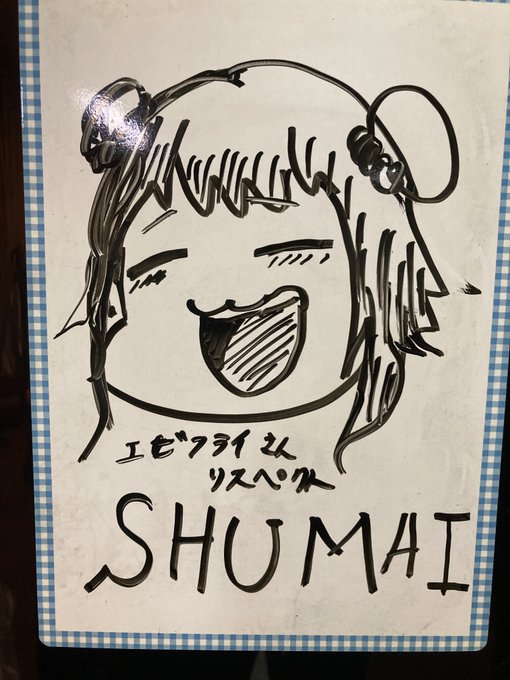 エビフライさん
リスペクト
SHUMAI